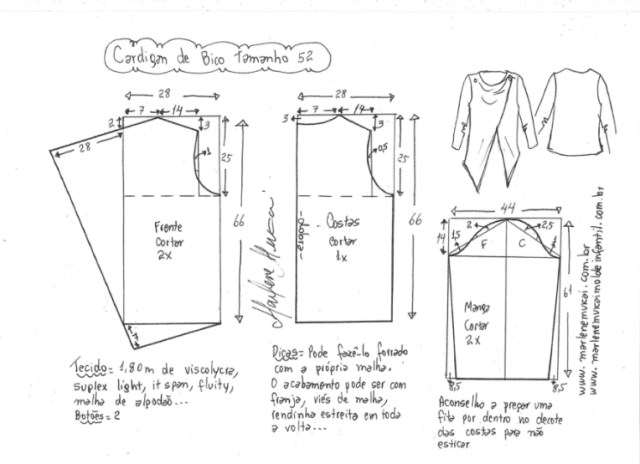 Cardigan de Bico Tamanho 52
28
7 14
2
3
28
1
25
66
Frente
Cortar
2x
28
7 14
3
3
0,5
25
66
-dobra-
Costas
cortar
1x
Marlene Mukai
44
14
2
2,5
1,5
F
C
61
Manga
Cortar
2x
8,5
8,5
www.marlenemukai.com.br
www.marlenemukaimoldeinfantil.com.br
Tecido = 1,80 m de viscolycra,
suplex light, it span, fluity,
malha de algodão...
Botões = 2
Dicas = Pode fazê-lo forrado
com a própria malha.
O acabamento pode ser com
franja, viés de malha,
rendinha estreita em toda
a volta...
Aconselho a prepar uma
fita por dentro no decote
das costas para não
esticar